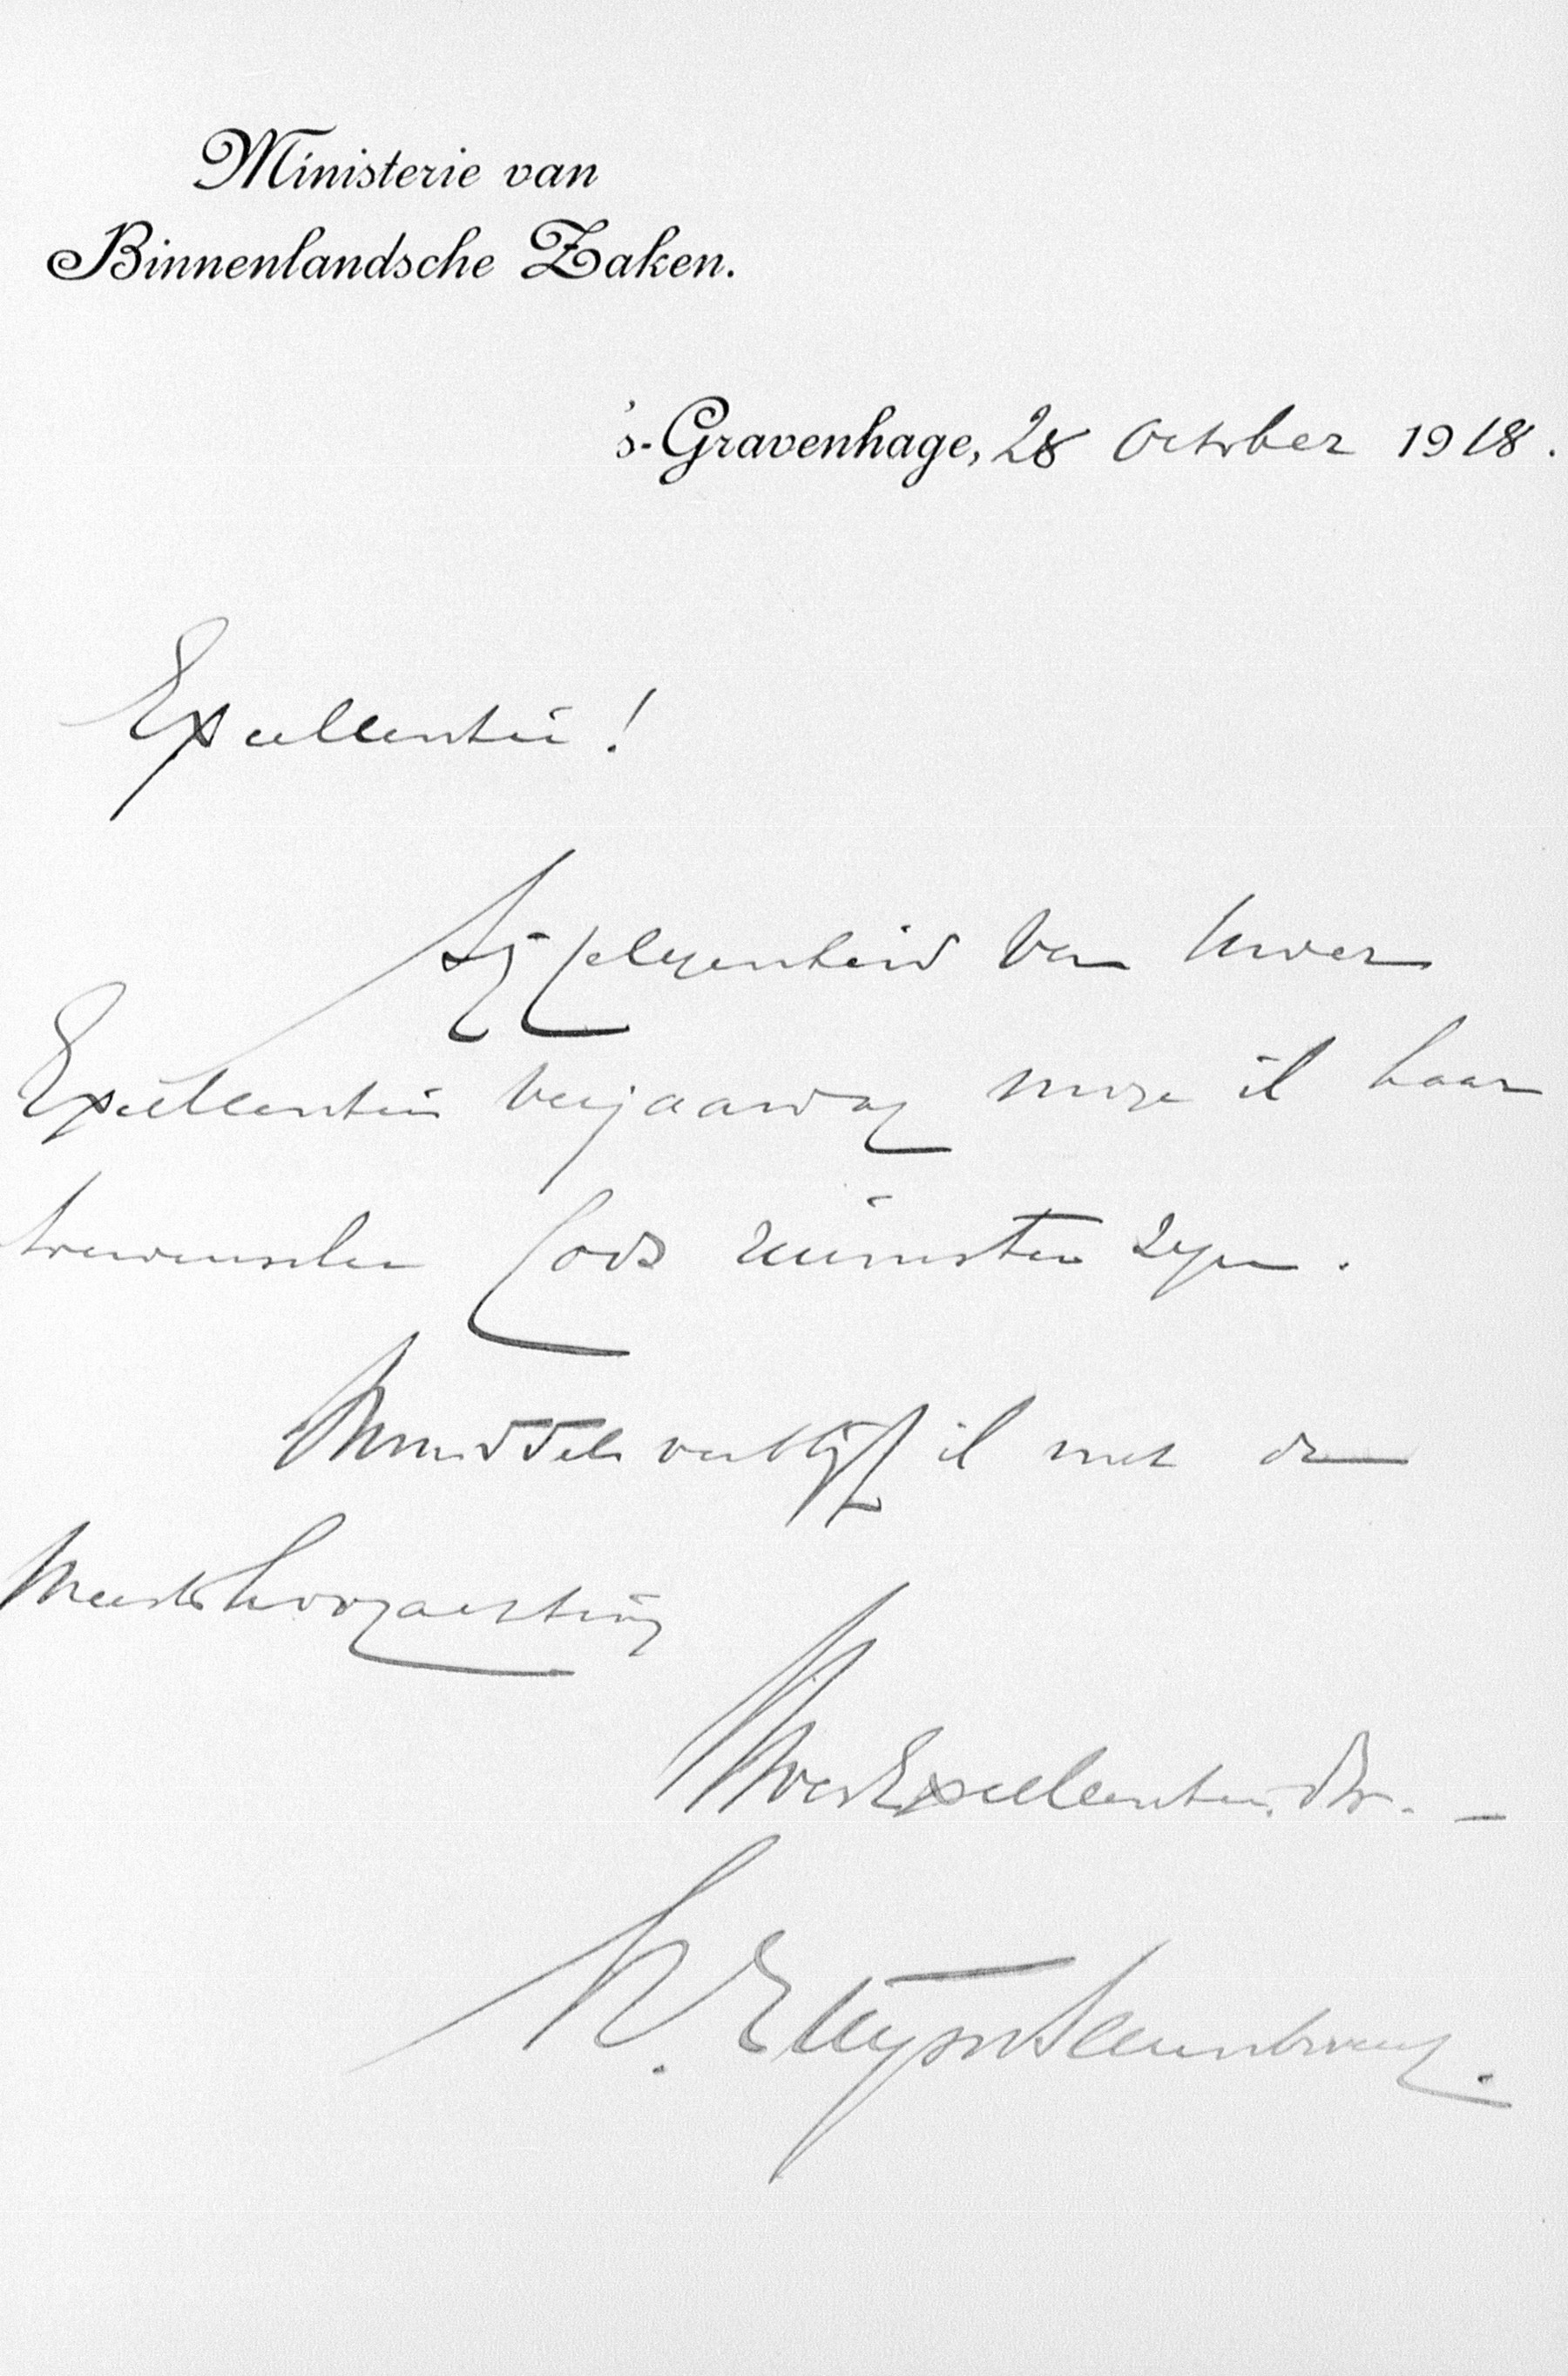 Ministerie van
Binnenlandsche Zaken.
's-Gravenhage, 28 October 1918.
Excellentie!
Bij gelegenheid van Uwer
Excellentie verjaardag moge ik haar
toewenschen Gods ruimsten zegen.
Inmiddels verblijf ik met de
meeste hoogachting
Uwer Excellentie. dw. -